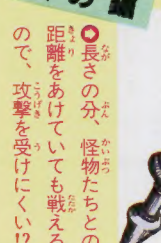 の
◯長さの分、怪物たちとの
距離をあけていても戦える
ので、攻撃を受けにくい!?